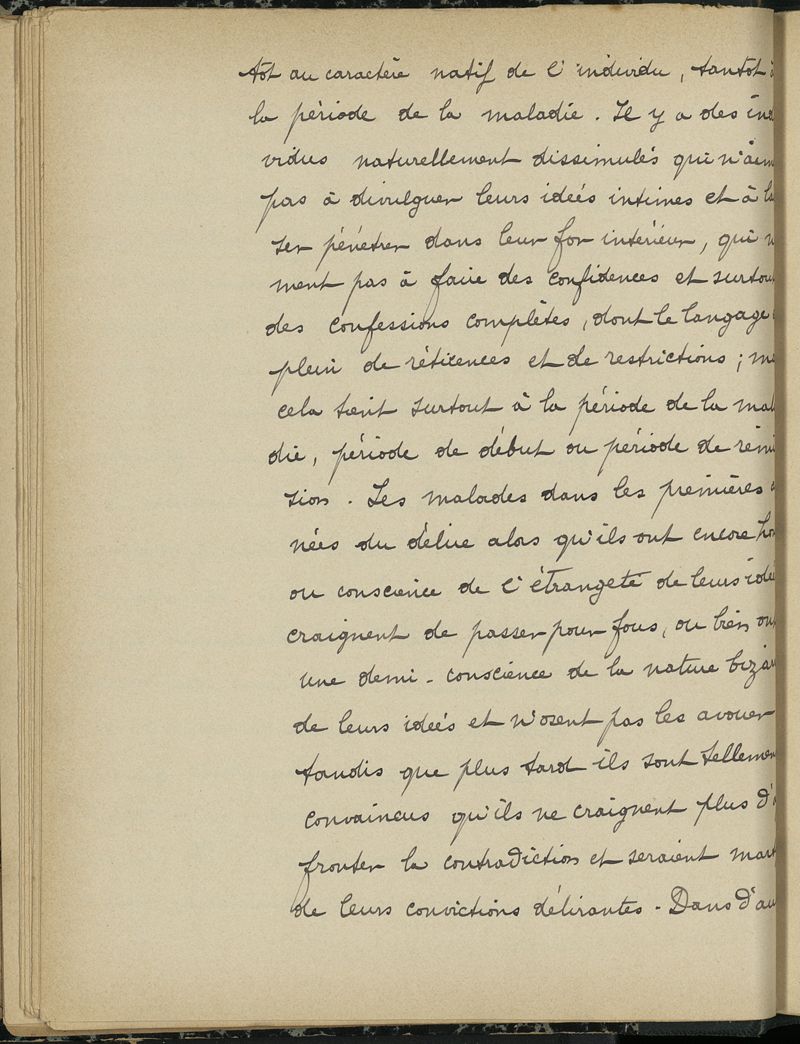 tôt au caractère natif de l'individu, tantôt à
la période de la maladie. Il y a des ind
vidus naturellement dissimulés qui n'aim
pas à divulguer leurs ideés intimes et à la
ser pénétrer dans leur for intérieur, qui n
ment pas à faire des confidences et surtou
des confessions complètes, dont le langage
plein de réticences et de restrictions ; ma
cela tient surtout à la période de la mal
die, période de début ou période de rémi
sion. Les malades dans les premières a
nées du délire alors qu'ils ont encore hon
ou conscience de l'étrangeté de leurs idé
craignent de passer pour fous, ou bien on
une demi-conscience de la nature bizar
de leurs ideés et n'osent pas les avouer
tandis que plus tard ils sont tellemen
convaincus qu'ils ne craignent plus d'a
fronter la contradiction et seraient mart
de leurs convictions délirantes. Dans d'au